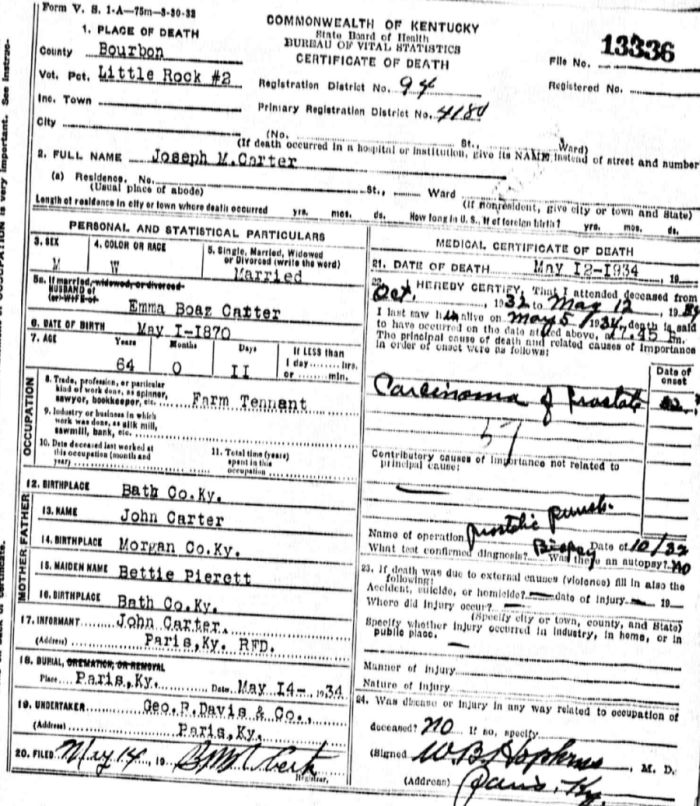 Form V. S. 1-A—75m—3-30-32
COMMONWEALTH OF KENTUCKY
State Board of Health
BUREAU OF VITAL STATISTICS
CERTIFICATE OF DEATH
File No. 13336
Registered No.
1. PLACE OF DEATH
County Bourbon
Vot. Pct. Little Rock #2
Registration District No. 94
Inc. Town
Primary Registration District No. 4180
City
(No. St., Ward)
(If death occurred in a hospital or institution, give its NAME instead of street and number
2. FULL NAME Joseph M.Carter
(a) Residence. No. St., Ward
(Usual place of abode)
(If nonresident, give city or town and State)
Length of residence in city or town where death occurred yrs. mos. ds. How long in U. S., if of foreign birth? yrs. mos. ds.
PERSONAL AND STATISTICAL PARTICULARS
3. SEX
M
4. COLOR OR RACE
W
5. Single, Married, Widowed
or Divorced (write the word)
Married
5a. If married, widowed, or divorced
HUSBAND of
(or) WIFE of
Emma Boaz Catter
6. DATE OF BIRTH May I-1870
7. AGE Years Months Days If LESS than
64 0 II 1 day hrs.
or min.
OCCUPATION
8. Trade, profession, or particular
kind of work done, as spinner,
sawyer, bookkeeper, etc. Farm Tennant
9. Industry or business in which
work was done, as silk mill,
sawmill, bank, etc.
10. Date deceased last worked at
this occupation (month and
year)
11. Total time (years)
spent in this
occupation
12. BIRTHPLACE Bath Co.Ky.
FATHER
13. NAME John Carter
14. BIRTHPLACE Morgan Co.Ky.
MOTHER
15. MAIDEN NAME Bettie Pierett
16. BIRTHPLACE Bath Co.Ky.
17. INFORMANT John Carter.
(Address) Paris,Ky. RFD.
18. BURIAL, CREMATION, OR REMOVAL
Place Paris,Ky. Date May I4- 1934
19. UNDERTAKER Geo.R.Davis & Co.,
(Address) Paris,Ky.
20. FILED May 14, 19
Registrar.
MEDICAL CERTIFICATE OF DEATH
21. DATE OF DEATH May I2-1934 19
22. I HEREBY CERTIFY, That I attended deceased from
Oct. 1932 to May 12, 1934
I last saw him alive on May 5, 1934, death is said
to have occurred on the date stated above, at 7.45 Pm.
The principal cause of death and related causes of importance
in order of onset were as follows:
Date of
onset
Carcinoma of Prostate
57
Contributory causes of importance not related to
principal cause:
Name of operation Prostatic Punch. Date of 10/32
What test confirmed diagnosis? Biopsy Was there an autopsy? No
23. If death was due to external causes (violence) fill in also the
following:
Accident, suicide, or homicide? — date of injury — 19
Where did injury occur? —
(Specify city or town, county, and State)
Specify whether injury occurred in industry, in home, or in
public place. —
Manner of injury
Nature of injury
24. Was disease or injury in any way related to occupation of
deceased? No If so, specify
(Signed W B Hopkins, M. D.
(Address) Paris, Ky
OCCUPATION is very important. See instruc-